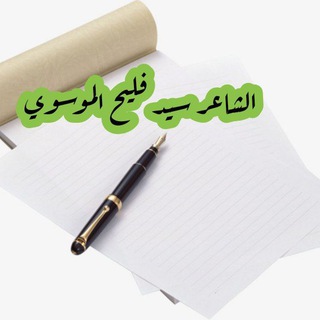 الشاعر سيد فليح الموسوي